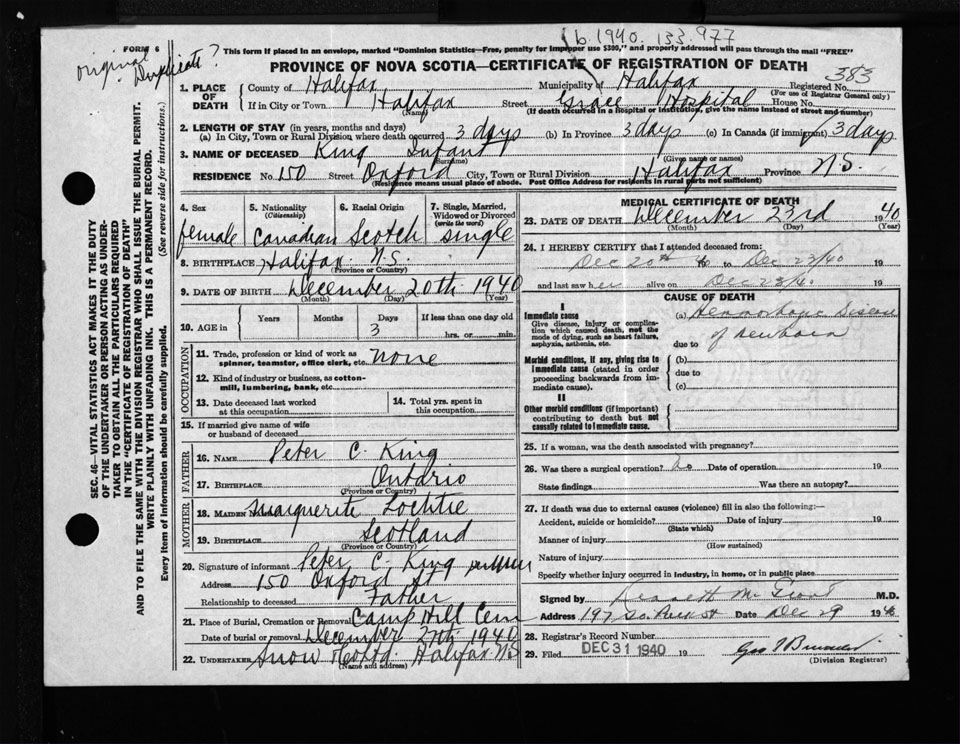 b. 1940. 133.977
FORM 6
original? Duplicate?
This form if placed in an envelope, marked "Dominion Statistics—Free, penalty for improper use $300," and properly addressed will pass through the mail "FREE"
PROVINCE OF NOVA SCOTIA—CERTIFICATE OF REGISTRATION OF DEATH
383
1. PLACE OF DEATH County of Halifax Municipality of Halifax Registered No.
(For use of Registrar General only)
If in City or Town Halifax Street Grace Hospital House No.
(Name) (If death occurred in a Hospital or Institution, give the name instead of street and number)
2. LENGTH OF STAY (in years, months and days)
(a) In City, Town or Rural Division where death occurred 3 days (b) In Province 3 days (c) In Canada (if immigrant) 3 days
3. NAME OF DECEASED King Infant
(Surname) (Given name or names)
RESIDENCE No. 150 Street Oxford City, Town or Rural Division Halifax Province N.S.
(Residence means usual place of abode. Post Office Address for residents in rural parts not sufficient)
4. Sex female
5. Nationality (Citizenship) Canadian
6. Racial Origin Scotch
7. Single, Married, Widowed or Divorced (write the word) single
8. BIRTHPLACE Halifax N.S.
(Province or Country)
9. DATE OF BIRTH December 20th 1940
(Month) (Day) (Year)
10. AGE in Years Months Days 3 If less than one day old
hrs. or min.
OCCUPATION
11. Trade, profession or kind of work as spinner, teamster, office clerk, etc. none
12. Kind of industry or business, as cotton-mill, lumbering, bank, etc.
13. Date deceased last worked at this occupation
14. Total yrs. spent in this occupation
15. If married give name of wife or husband of deceased
FATHER
16. NAME Peter C. King
17. BIRTHPLACE Ontario
(Province or Country)
MOTHER
18. MAIDEN NAME Marguerite Lochtie
19. BIRTHPLACE Scotland
(Province or Country)
20. Signature of informant Peter C. King
Address 150 Oxford St
Relationship to deceased Father
21. Place of Burial, Cremation or Removal Camp Hill Cem
Date of burial or removal December 27th 1940
22. UNDERTAKER Snow & Co Ltd. Halifax N.S
(Name and address)
MEDICAL CERTIFICATE OF DEATH
23. DATE OF DEATH December 23rd 1940
(Month) (Day) (Year)
24. I HEREBY CERTIFY that I attended deceased from
Dec 20th 40 to Dec 23/40 19
and last saw her alive on Dec 23/40 19
CAUSE OF DEATH
I
Immediate cause
Give disease, injury or complication which caused death, not the mode of dying, such as heart failure, asphyxia, asthenia, etc.
(a) Hemorrhagic Disease of newborn
due to
Morbid conditions, if any, giving rise to immediate cause (stated in order proceeding backwards from immediate cause).
(b)
due to
(c)
II
Other morbid conditions (if important) contributing to death but not causally related to immediate cause.
25. If a woman, was the death associated with pregnancy?
26. Was there a surgical operation? no Date of operation 19
State findings Was there an autopsy?
27. If death was due to external causes (violence) fill in also the following:—
Accident, suicide or homicide? Date of injury 19
(State which)
Manner of injury
(How sustained)
Nature of injury
Specify whether injury occurred in industry, in home, or in public place
Signed by M.D.
Address 197 So. Park St Date Dec 29 1940
28. Registrar's Record Number
29. Filed DEC 31 1940 19
(Division Registrar)
SEC. 46—VITAL STATISTICS ACT MAKES IT THE DUTY
OF THE UNDERTAKER OR PERSON ACTING AS UNDERTAKER
TO OBTAIN ALL THE PARTICULARS REQUIRED
IN THE "CERTIFICATE OF REGISTRATION OF DEATH"
AND TO FILE THE SAME WITH THE DIVISION REGISTRAR WHO SHALL ISSUE THE BURIAL PERMIT.
WRITE PLAINLY WITH UNFADING INK. THIS IS A PERMANENT RECORD.
Every item of information should be carefully supplied. (See reverse side for instructions.)